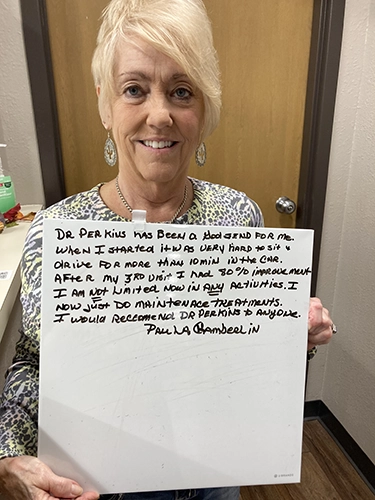 DR PERKINS HAS BEEN A GOD SEND FOR ME.
WHEN I STARTED IT WAS VERY HARD TO SIT &
DRIVE FOR MORE THAN 10 MIN IN THE CAR.
AFTER MY 3RD VISIT I HAD 80% IMPROVEMENT
I AM NOT LIMITED NOW IN ANY ACTIVITIES. I
NOW JUST DO MAINTENACE TREATMENTS.
I WOULD RECCOMEND DR PERKINS TO ANYONE.
PAULA